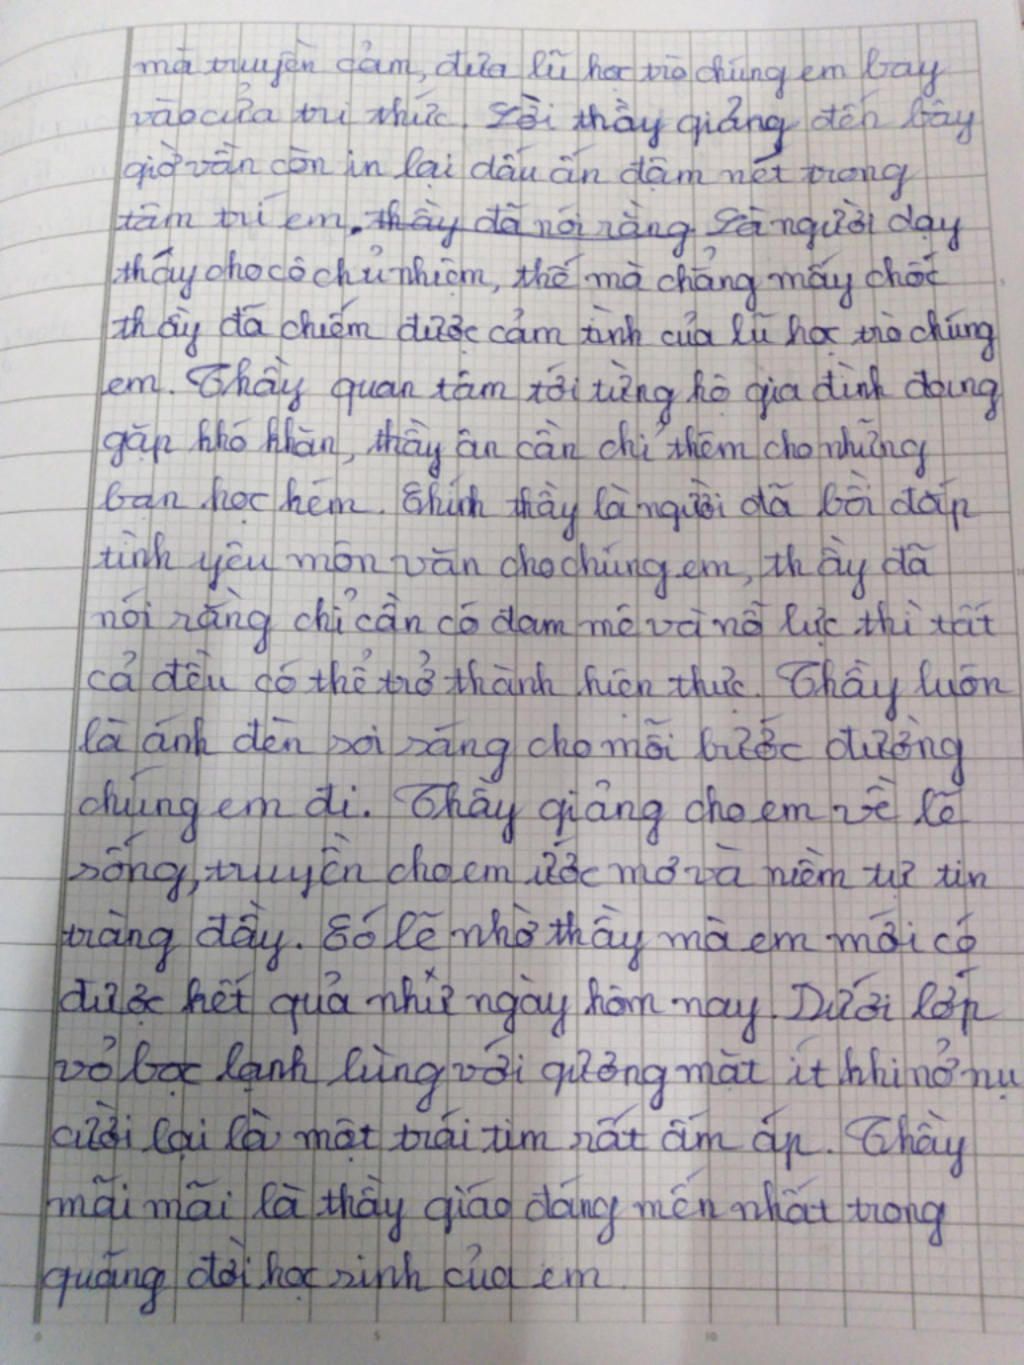 mà truyền cảm, đưa lũ học trò chúng em bay
vào cửa tri thức. Lời thầy giảng đến bây
giờ vẫn còn in lại dấu ấn đậm nét trong
tâm trí em. thầy đã nói rằng Là người dạy
thấy cho cô chủ nhiệm, thế mà chẳng mấy chốc
thầy đã chiếm được cảm tình của lũ học trò chúng
em. Thầy quan tâm tới từng hộ gia đình đang
gặp khó khăn, thầy ân cần chỉ thêm cho những
bạn học kém. Chính thầy là người đã bồi đắp
tình yêu môn văn cho chúng em, thầy đã
nói rằng chỉ cần có đam mê và nỗ lực thì tất
cả đều có thể trở thành hiện thực. Thầy luôn
là ánh đèn soi sáng cho mỗi bước đường
chúng em đi. Thầy giảng cho em về lẽ
sống, truyền cho em ước mơ và niềm tự tin
tràng đầy. Có lẽ nhờ thầy mà em mới có
được kết quả như ngày hôm nay. Dưới lớp
vỏ bọc lạnh lùng với gương mặt ít khi nở nụ
cười lại là một trái tim rất ấm áp. Thầy
mãi mãi là thầy giáo đáng mến nhất trong
quãng đời học sinh của em.
0 5 10